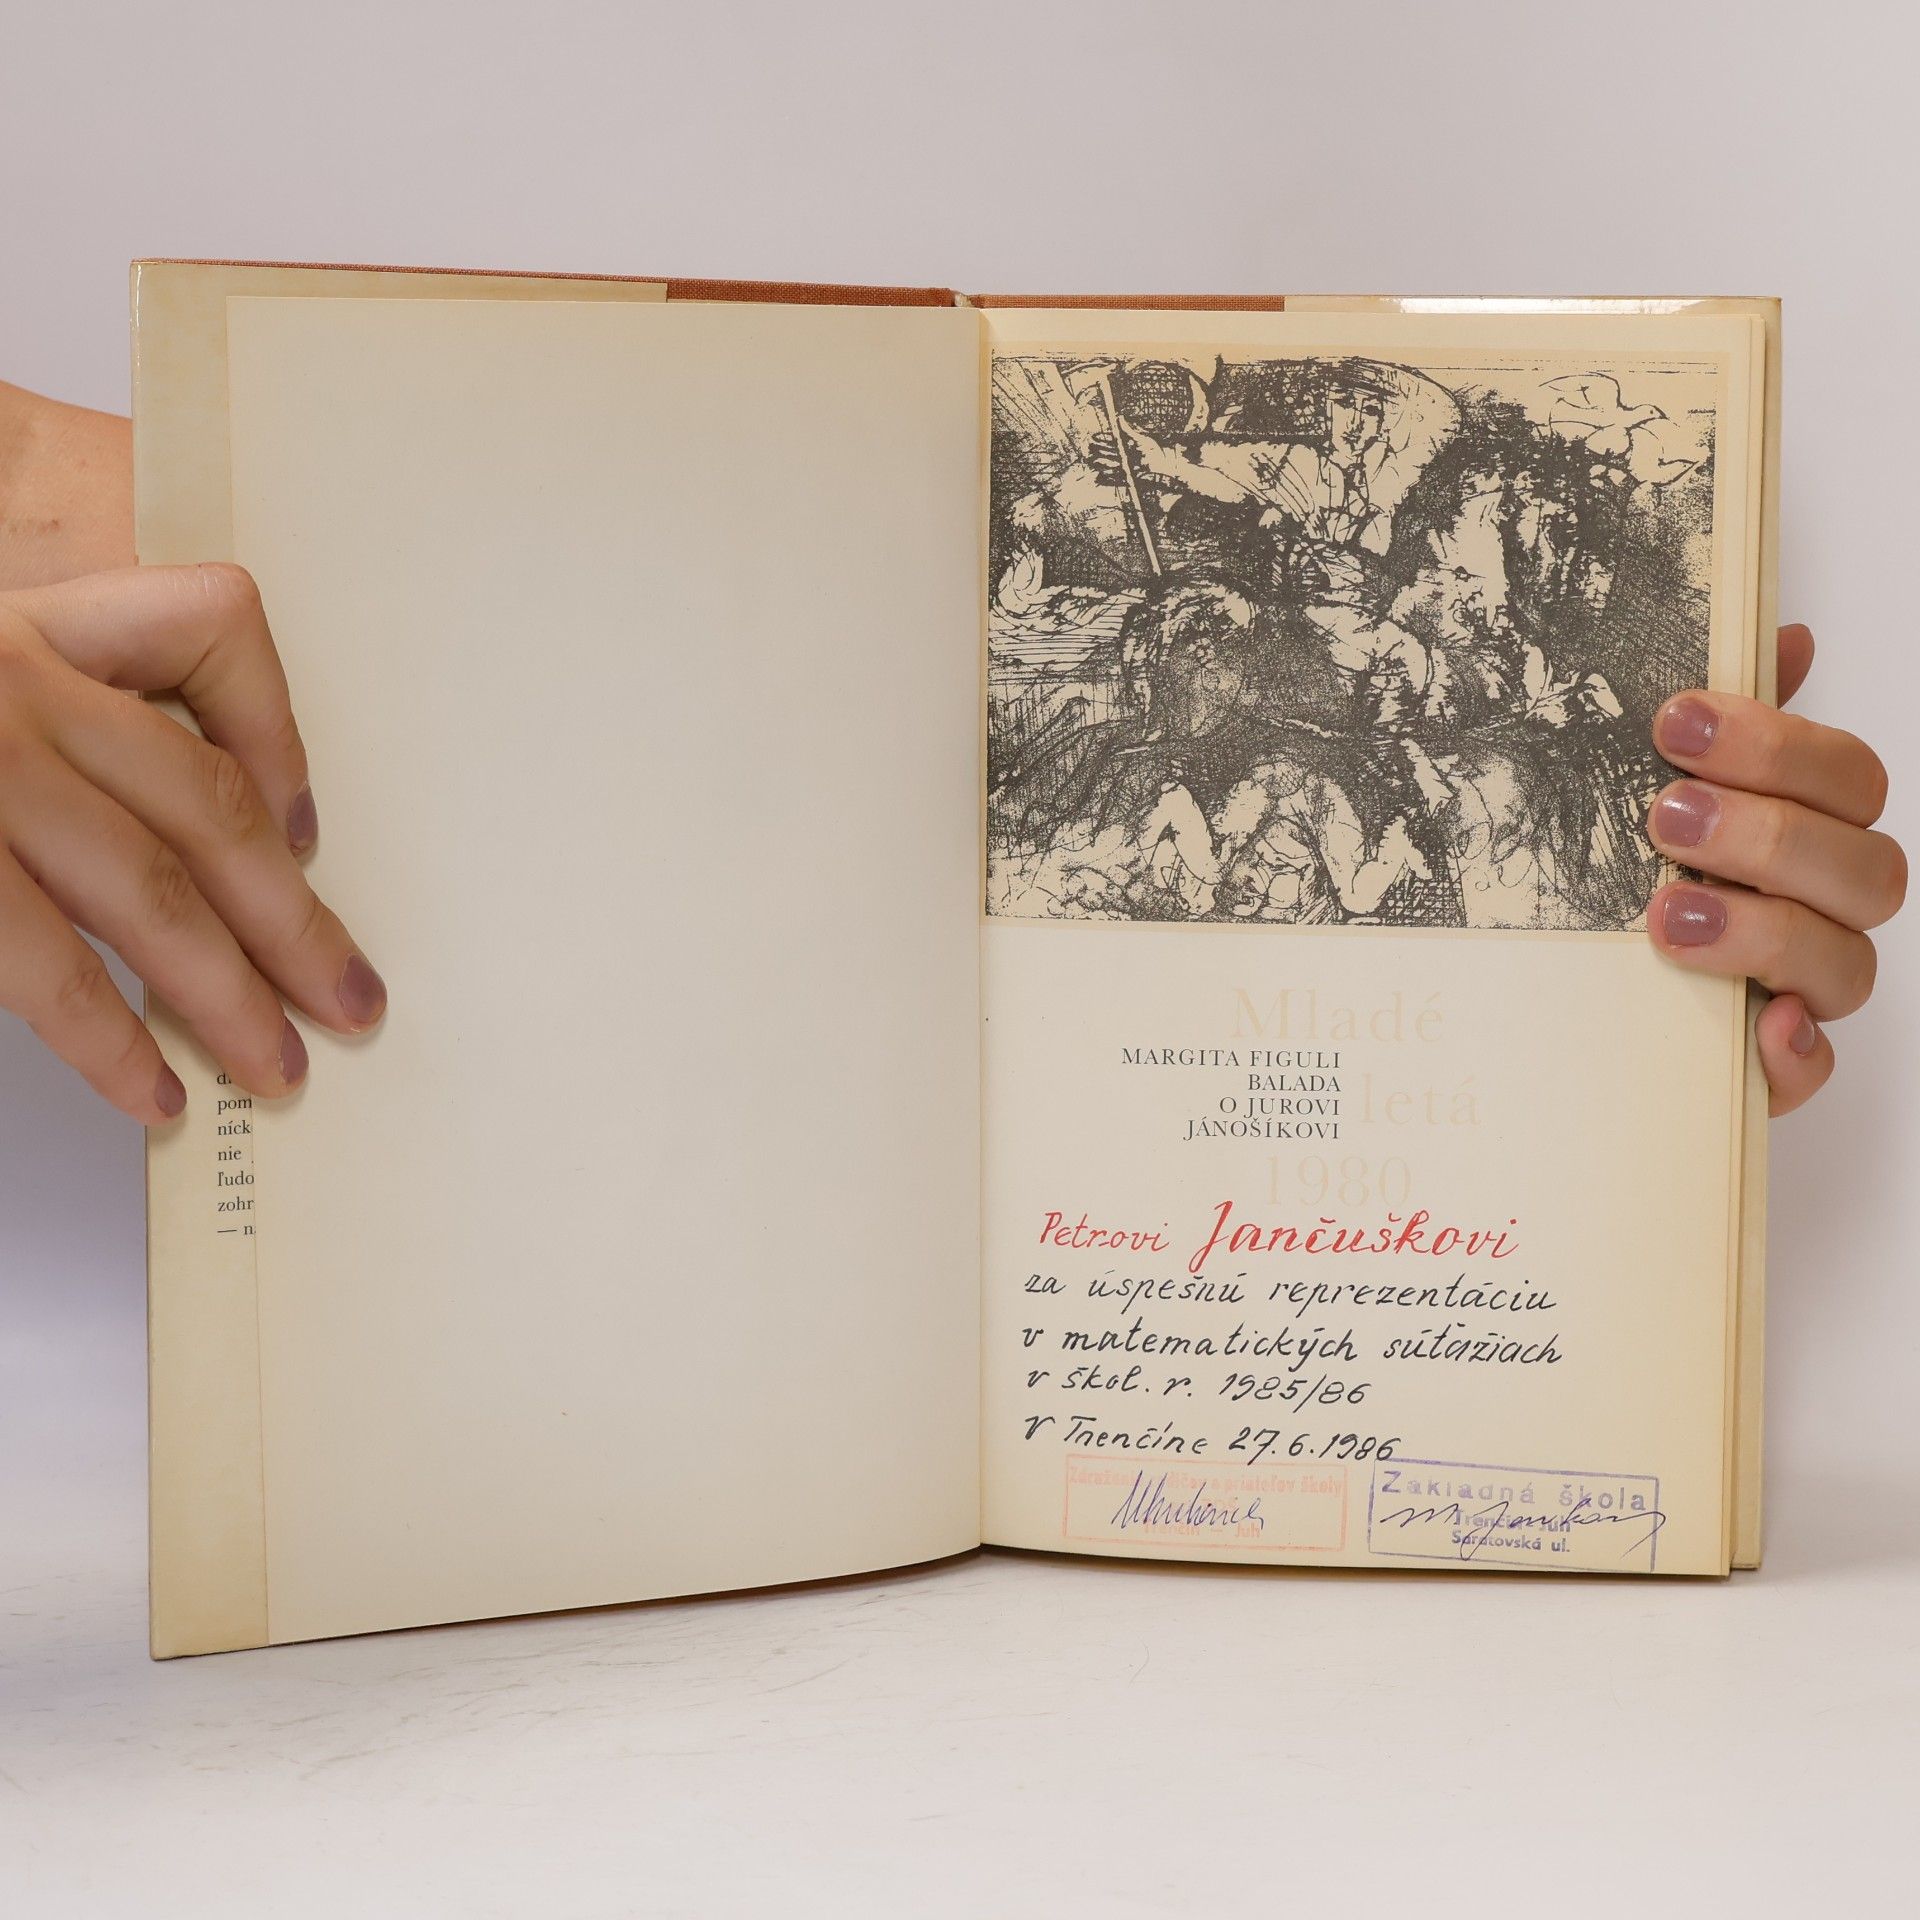 d
pom
níck
nie
ľudo
zohr
— n
Mladé
letá
1980
MARGITA FIGULI
BALADA
O JUROVI
JÁNOŠÍKOVI
Petrovi Jančuškovi
za úspešnú reprezentáciu
v matematických súťažiach
v škol. r. 1985/86
V Trenčíne 27.6.1986
Združenie rodičov a priateľov školy
Trenčín – Juh
Základná škola
Trenčín-Juh
Saratovská ul.